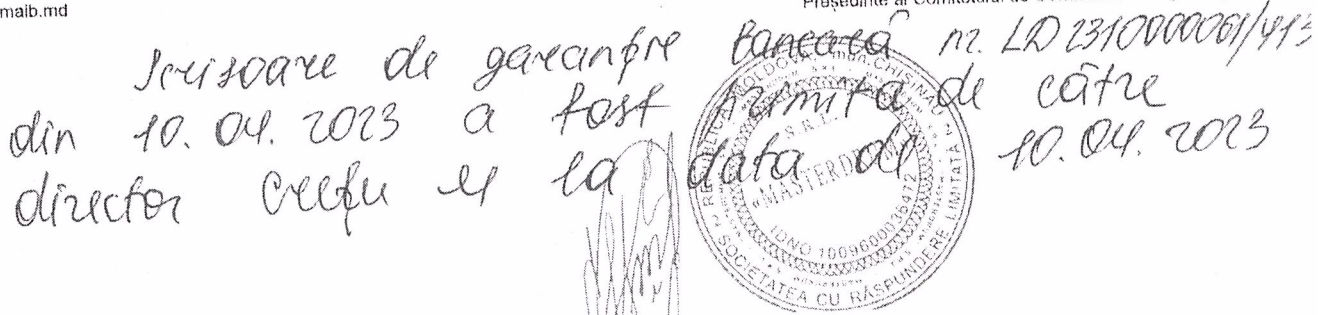 maib.md
Președinte al Comitetului de
Scrisoare de garanție Bancară nr. LD2310000061/413
din 10.04.2023 a fost primită de către
director Crețu la data de 10.04.2023
REPUBLICA MOLDOVA mun. CHIȘINĂU
S.R.L.
IDNO 1009600036472
SOCIETATEA CU RĂSPUNDERE LIMITATĂ